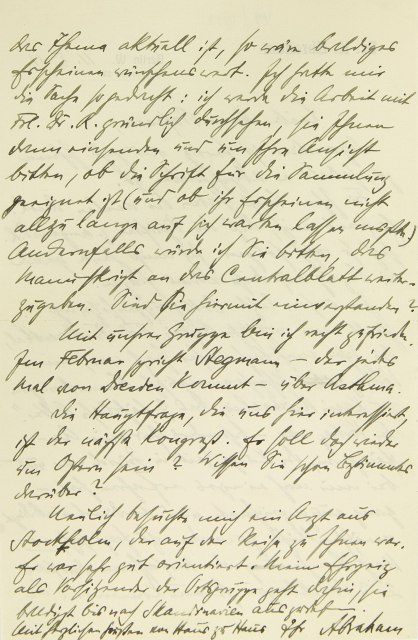 das Thema aktuell ist, so wäre baldiges
Erscheinen wünschenswert. Ich hatte mir
die Sache so gedacht: ich werde die Arbeit mit
Frl. Dr. K. gründlich durchsehen, sie Ihnen
dann einsenden und um Ihre Ansicht
bitten, ob die Schrift für die Sammlung
geeignet ist (und ob ihr Erscheinen nicht
allzu lange auf sich warten lassen müßte)
Andernfalls würde ich Sie bitten, das
Manuskript an das Centralblatt weiter-
zugeben. Sind Sie hiermit einverstanden?
Mit unsrer Gruppe bin ich recht zufrieden.
Im Februar spricht Stegmann – der jedes
Mal von Dresden kommt – über Asthma.
Die Hauptfrage, die uns hier interessiert
ist der nächste Kongreß. Er soll doch wieder
um Ostern sein? Wissen Sie schon Bestimmtes
darüber?
Neulich besuchte mich ein Arzt aus
Stockholm, der auf der Reise zu Ihnen war.
Er war sehr gut orientiert. Mein Ehrgeiz
als Vorsitzender der Ortsgruppe geht dahin, sie
bis nach Skandinavien
Mit herzlichen Grüßen von Haus zu Haus Ihr Abraham